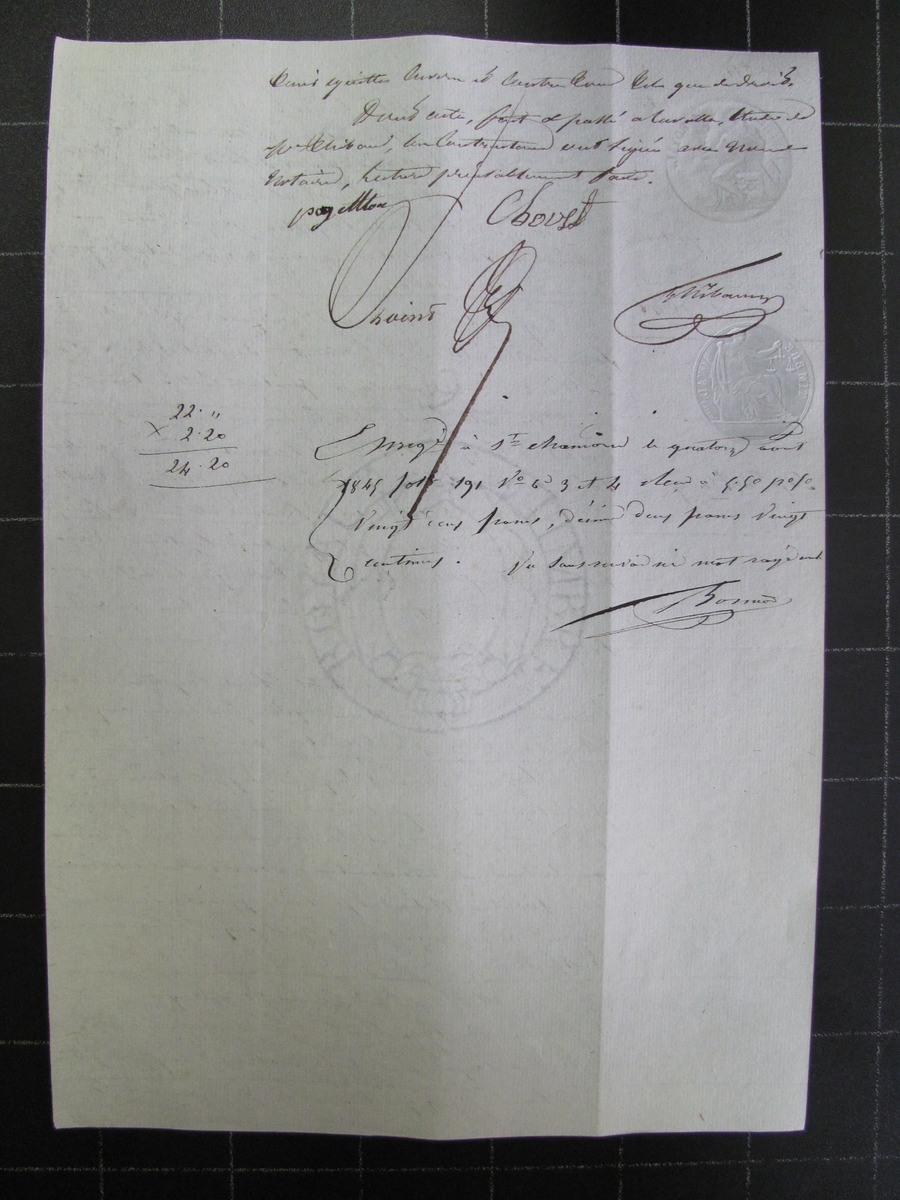 quittes envers et contre tous tels que de droit.
Dont acte, fait et passé a Lavalla, Etude de
Mᵉ Thibaud, les Contractans ont signé avec Nous
Notaire, Lecture préalablement faite.
Chovet
Thibaud
22 · "
2 · 20
24 · 20
Enregᵉ à Sᵗ chamond le quatorze aout
1845 folio 191 Vº Cᵉ 3 et 4 Reçu à 5.50 p %
Vingt deux francs, décime deux francs Vingt
Centimes. sans renvoi ni mot rayé nul